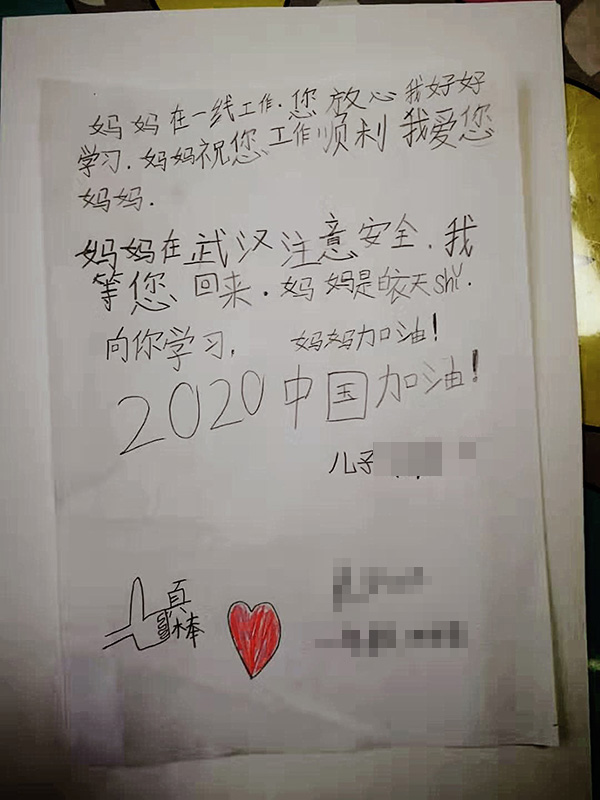 妈妈在一线工作.您放心我好好
学习.妈妈祝您工作顺利 我爱您
妈妈.
妈妈在武汉注意安全.我
等您回来.妈妈是白衣天shǐ.
向你学习, 妈妈加油!
2020中国加油!
儿子
真棒